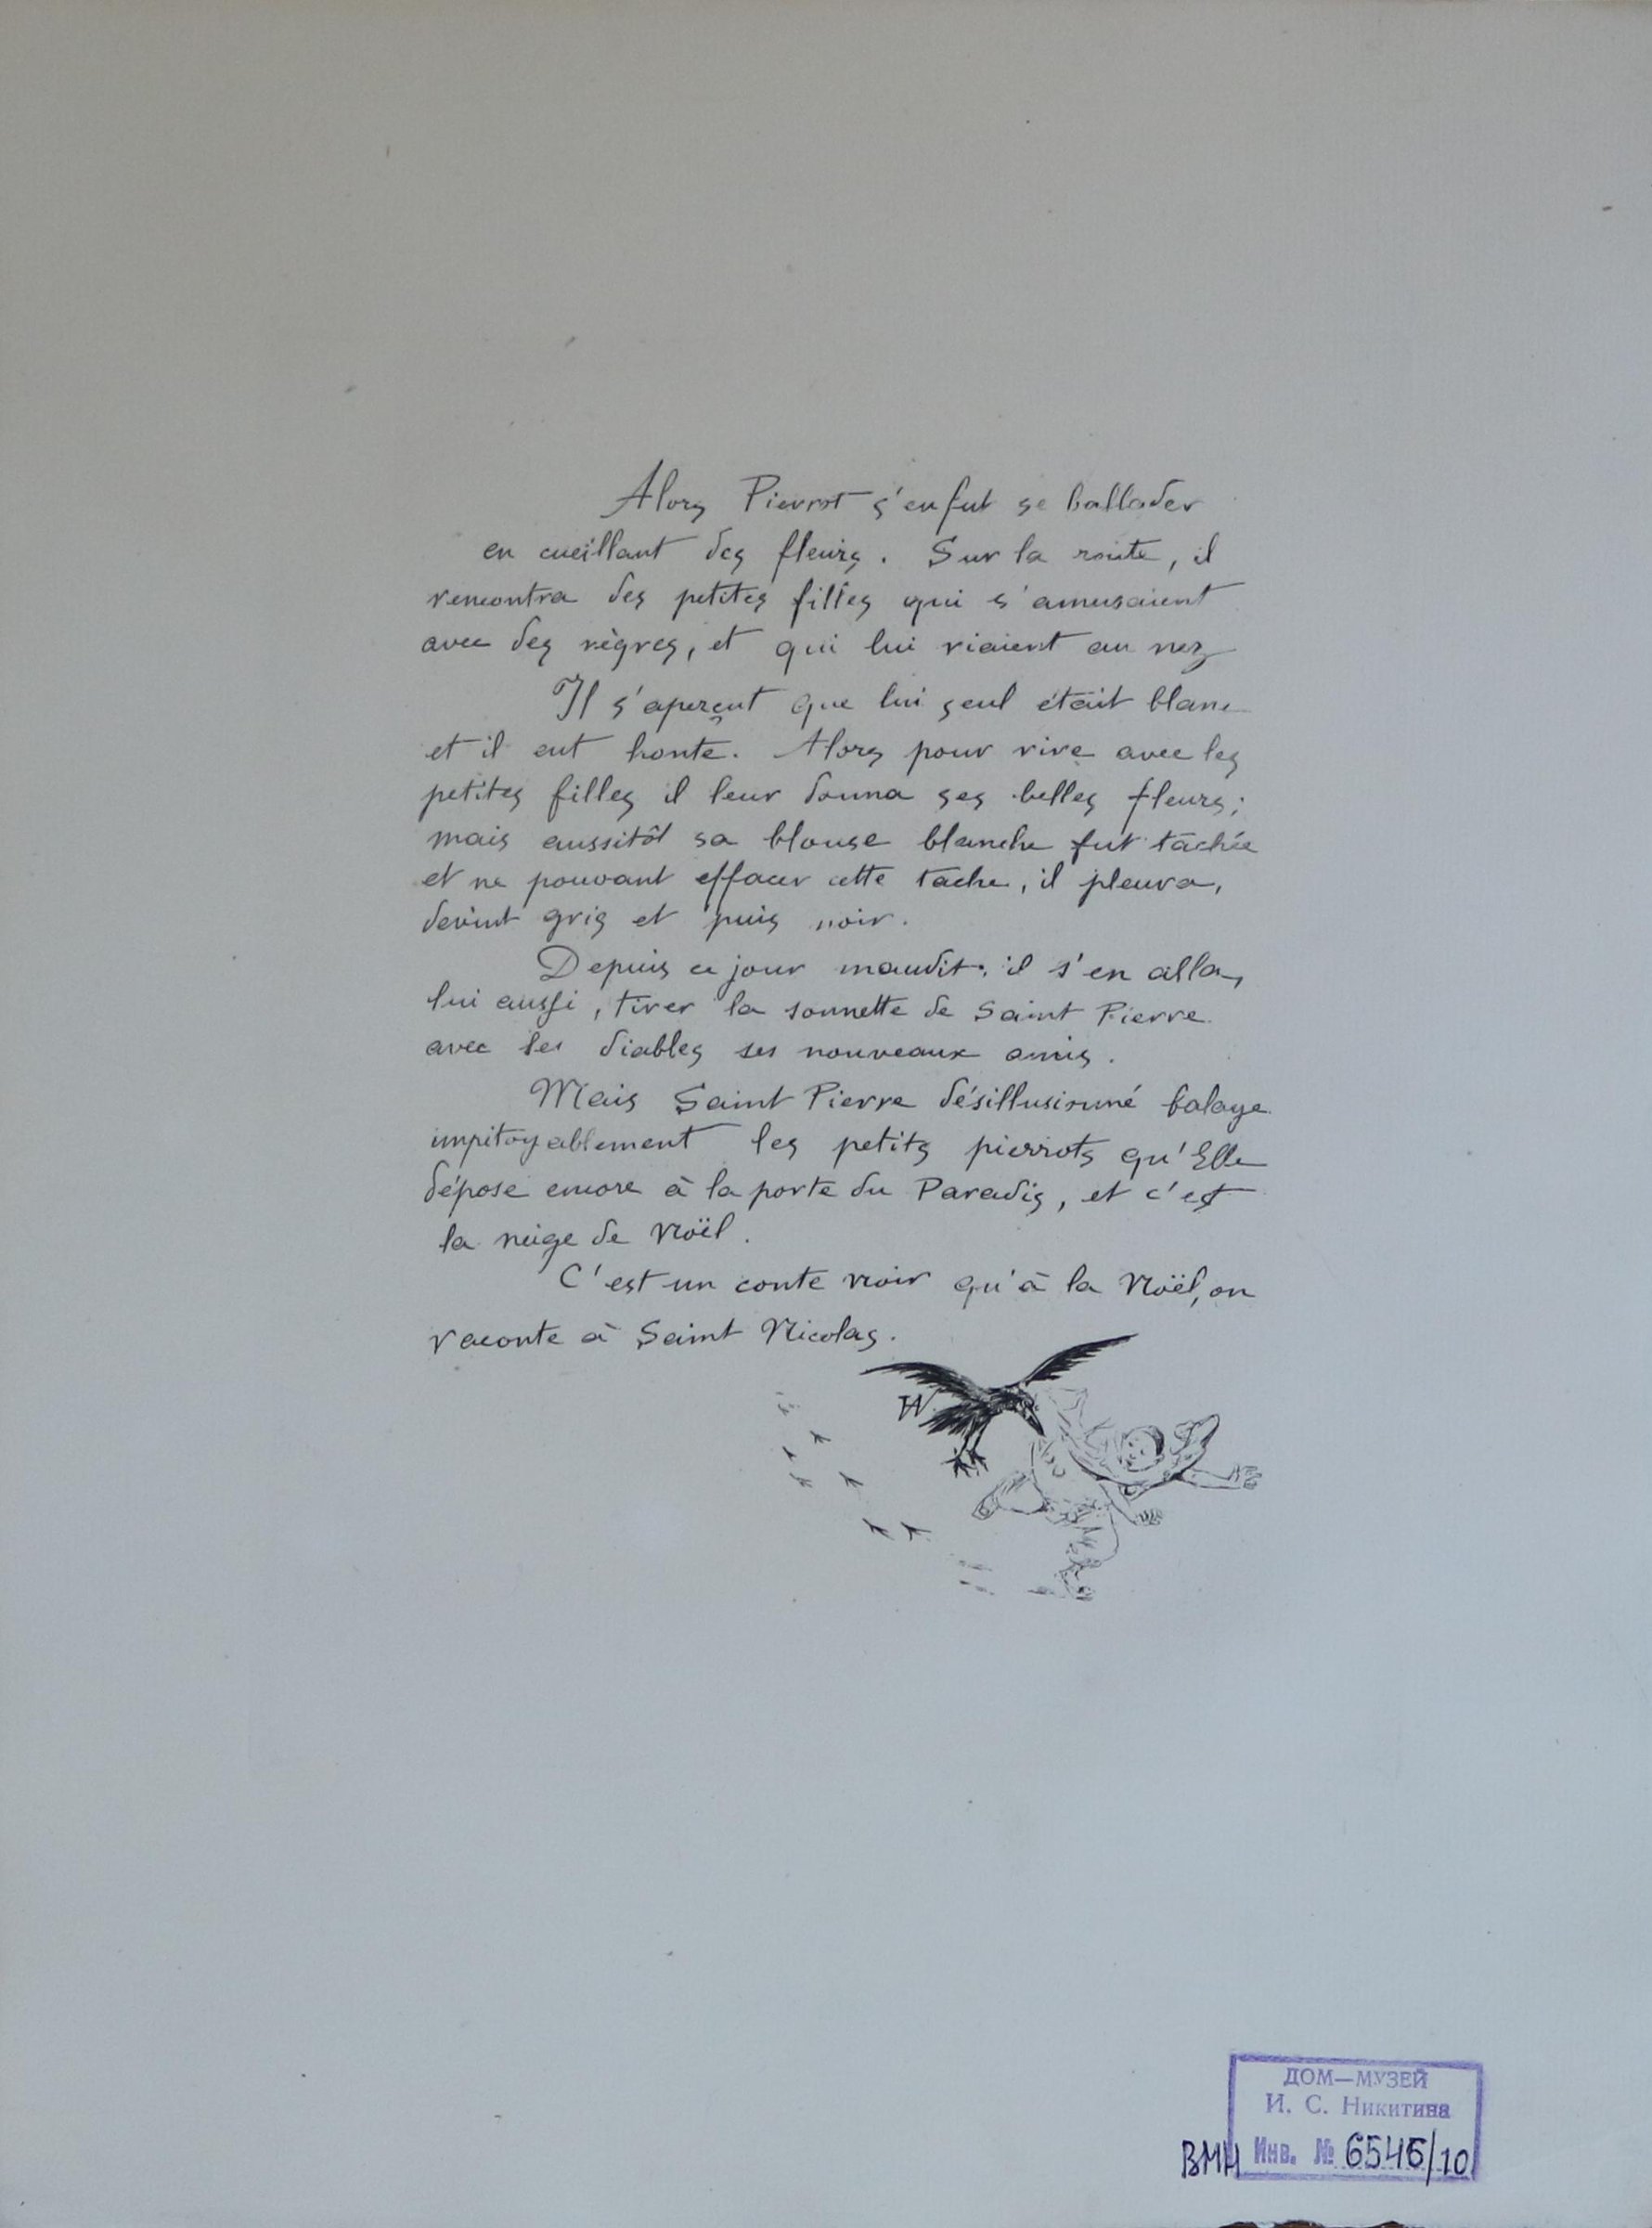 Alors Pierrot s'enfut se ballader
en cueillant des fleurs. Sur la route, il
rencontra des petites filles qui s'amusaient
avec des nègres, et qui lui riaient au nez
Il s'aperçut que lui seul était blanc
et il eut honte. Alors pour rire avec les
petites filles il leur donna ses belles fleurs;
mais aussitôt sa blouse blanche fut tachée
et ne pouvant effacer cette tache, il pleura,
devint gris et puis noir.
Depuis ce jour maudit, il s'en alla,
lui aussi, tirer la sonnette de Saint Pierre
avec les diables ses nouveaux amis.
Mais Saint Pierre désillusionné balaye
impitoyablement les petits pierrots qu'Elle
dépose encore à la porte du Paradis, et c'est
la neige de Noël.
C'est un conte noir qu'à la Noël, on
raconte à Saint Nicolas.
W
ДОМ—МУЗЕЙ
И. С. Никитина
ВМН Инв. № 6546/10